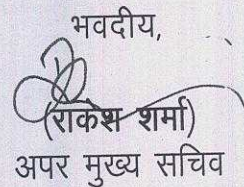 भवदीय,
(राकेश शर्मा)
अपर मुख्य सचिव